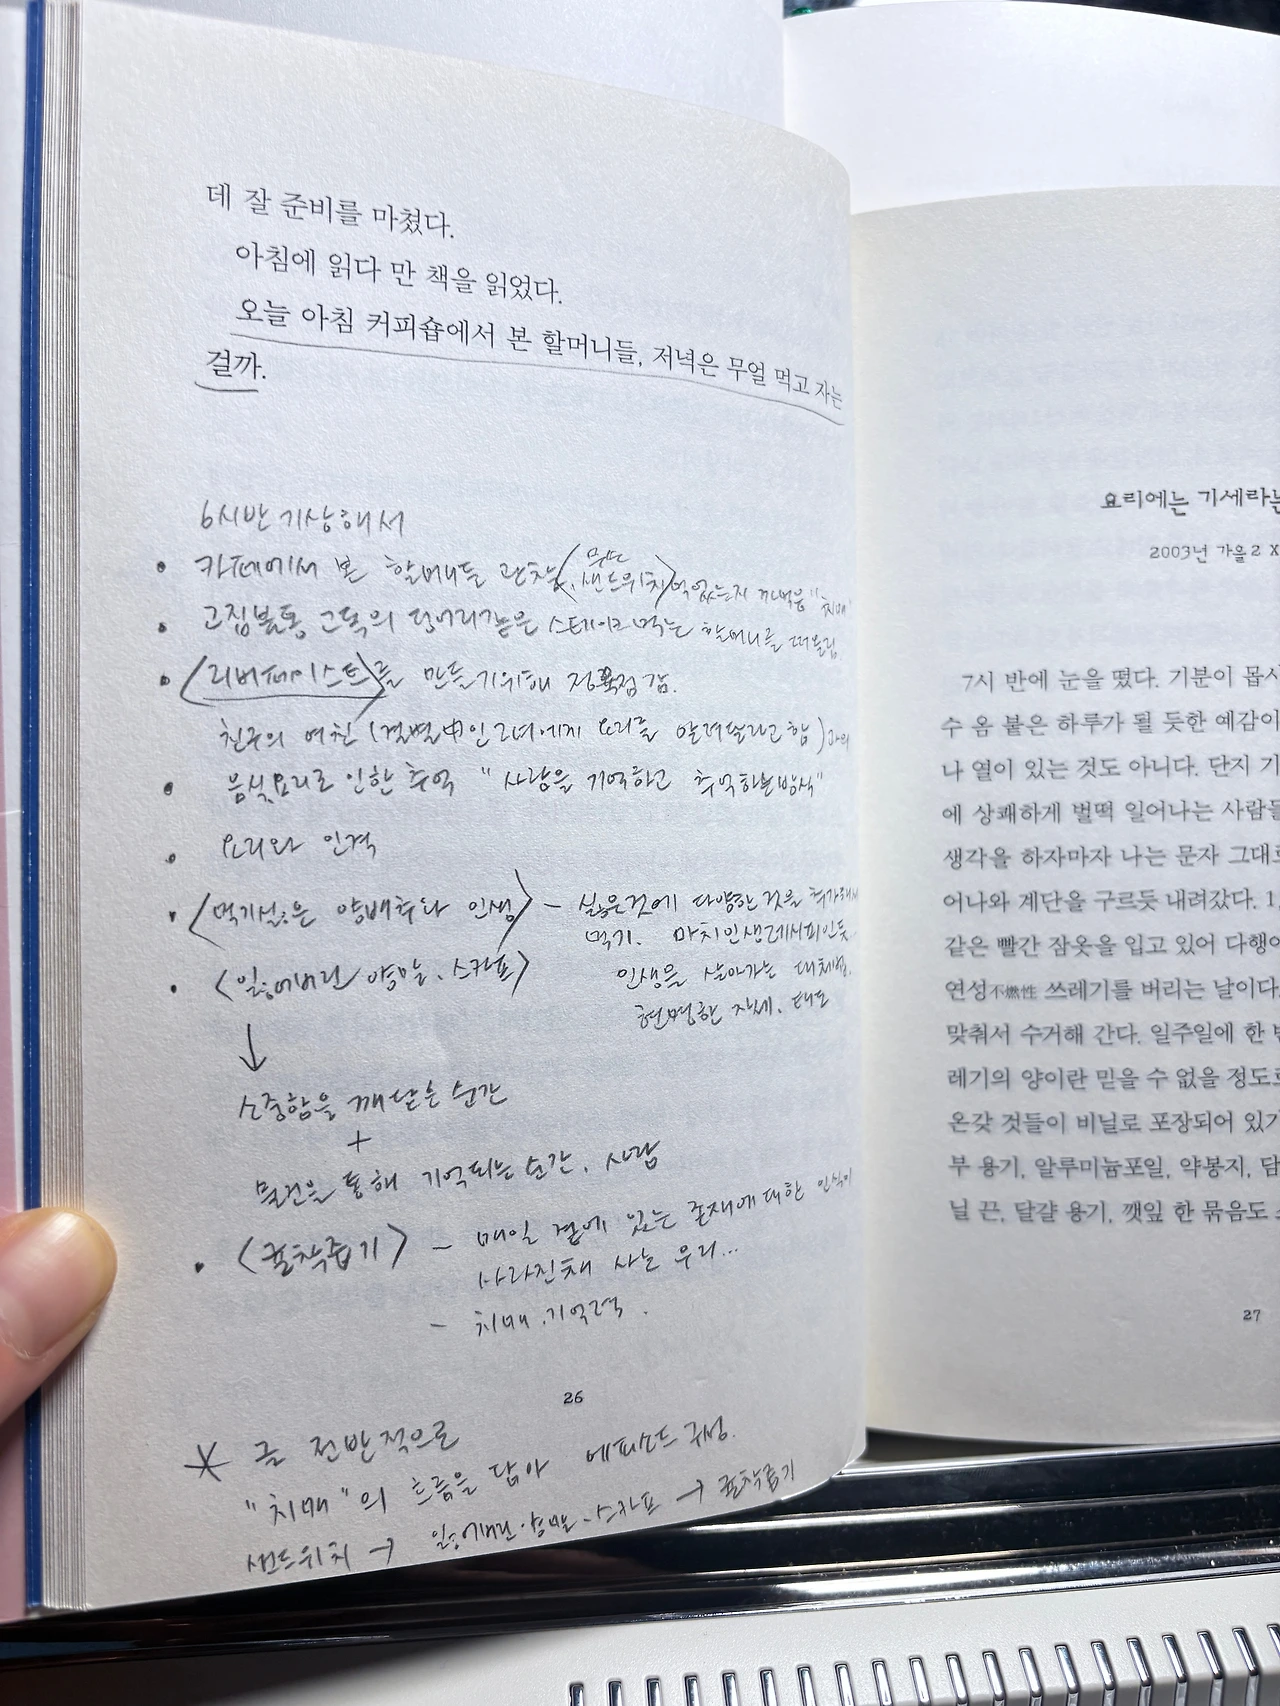 데 잘 준비를 마쳤다.
아침에 읽다 만 책을 읽었다.
오늘 아침 커피숍에서 본 할머니들, 저녁은 무얼 먹고 자는
걸까.
6시반 기상해서
카페에서 본 할머니들 관찰 (무슨 샌드위치) 먹었는지 까먹음 "치매"
고집불통 고독의 덩어리같은 스테이크 먹는 할머니를 떠올림
<리버페이스트>를 만들기위해 정육점 감.
친구의 여친 (결별中인 그녀에게 요리를 알려달라고 함)과의
음식,요리로 인한 추억 "사람을 기억하고 추억하는방식"
요리와 인격
<먹기싫은 양배추와 인생> - 싫은것에 다양한 것을 추가해서
먹기. 마치 인생레시피인듯.
인생을 살아가는 대체법.
현명한 자세. 태도
<잃어버린 양말.스카프>
↓
소중함을 깨닫는 순간
+
물건을 통해 기억되는 순간. 사람
<골착줍기> - 매일 곁에 있는 존재에 대한 인식이
사라진채 사는 우리...
- 치매.기억력.
26
* 글 전반적으로
"치매"의 흐름을 담아 에피소드 구성.
샌드위치 → 잃어버린.양말.스카프 →
요리에는 기세라는
2003년 가을2 X
7시 반에 눈을 떴다. 기분이 몹시
수 옴 붙은 하루가 될 듯한 예감이
나 열이 있는 것도 아니다. 단지 기
에 상쾌하게 벌떡 일어나는 사람들
생각을 하자마자 나는 문자 그대로
어나와 계단을 구르듯 내려갔다. 1,
같은 빨간 잠옷을 입고 있어 다행이
연성不燃性 쓰레기를 버리는 날이다.
맞춰서 수거해 간다. 일주일에 한 번
레기의 양이란 믿을 수 없을 정도로
온갖 것들이 비닐로 포장되어 있기
부 용기, 알루미늄포일, 약봉지, 담
닐 끈, 달걀 용기, 깻잎 한 묶음도
27